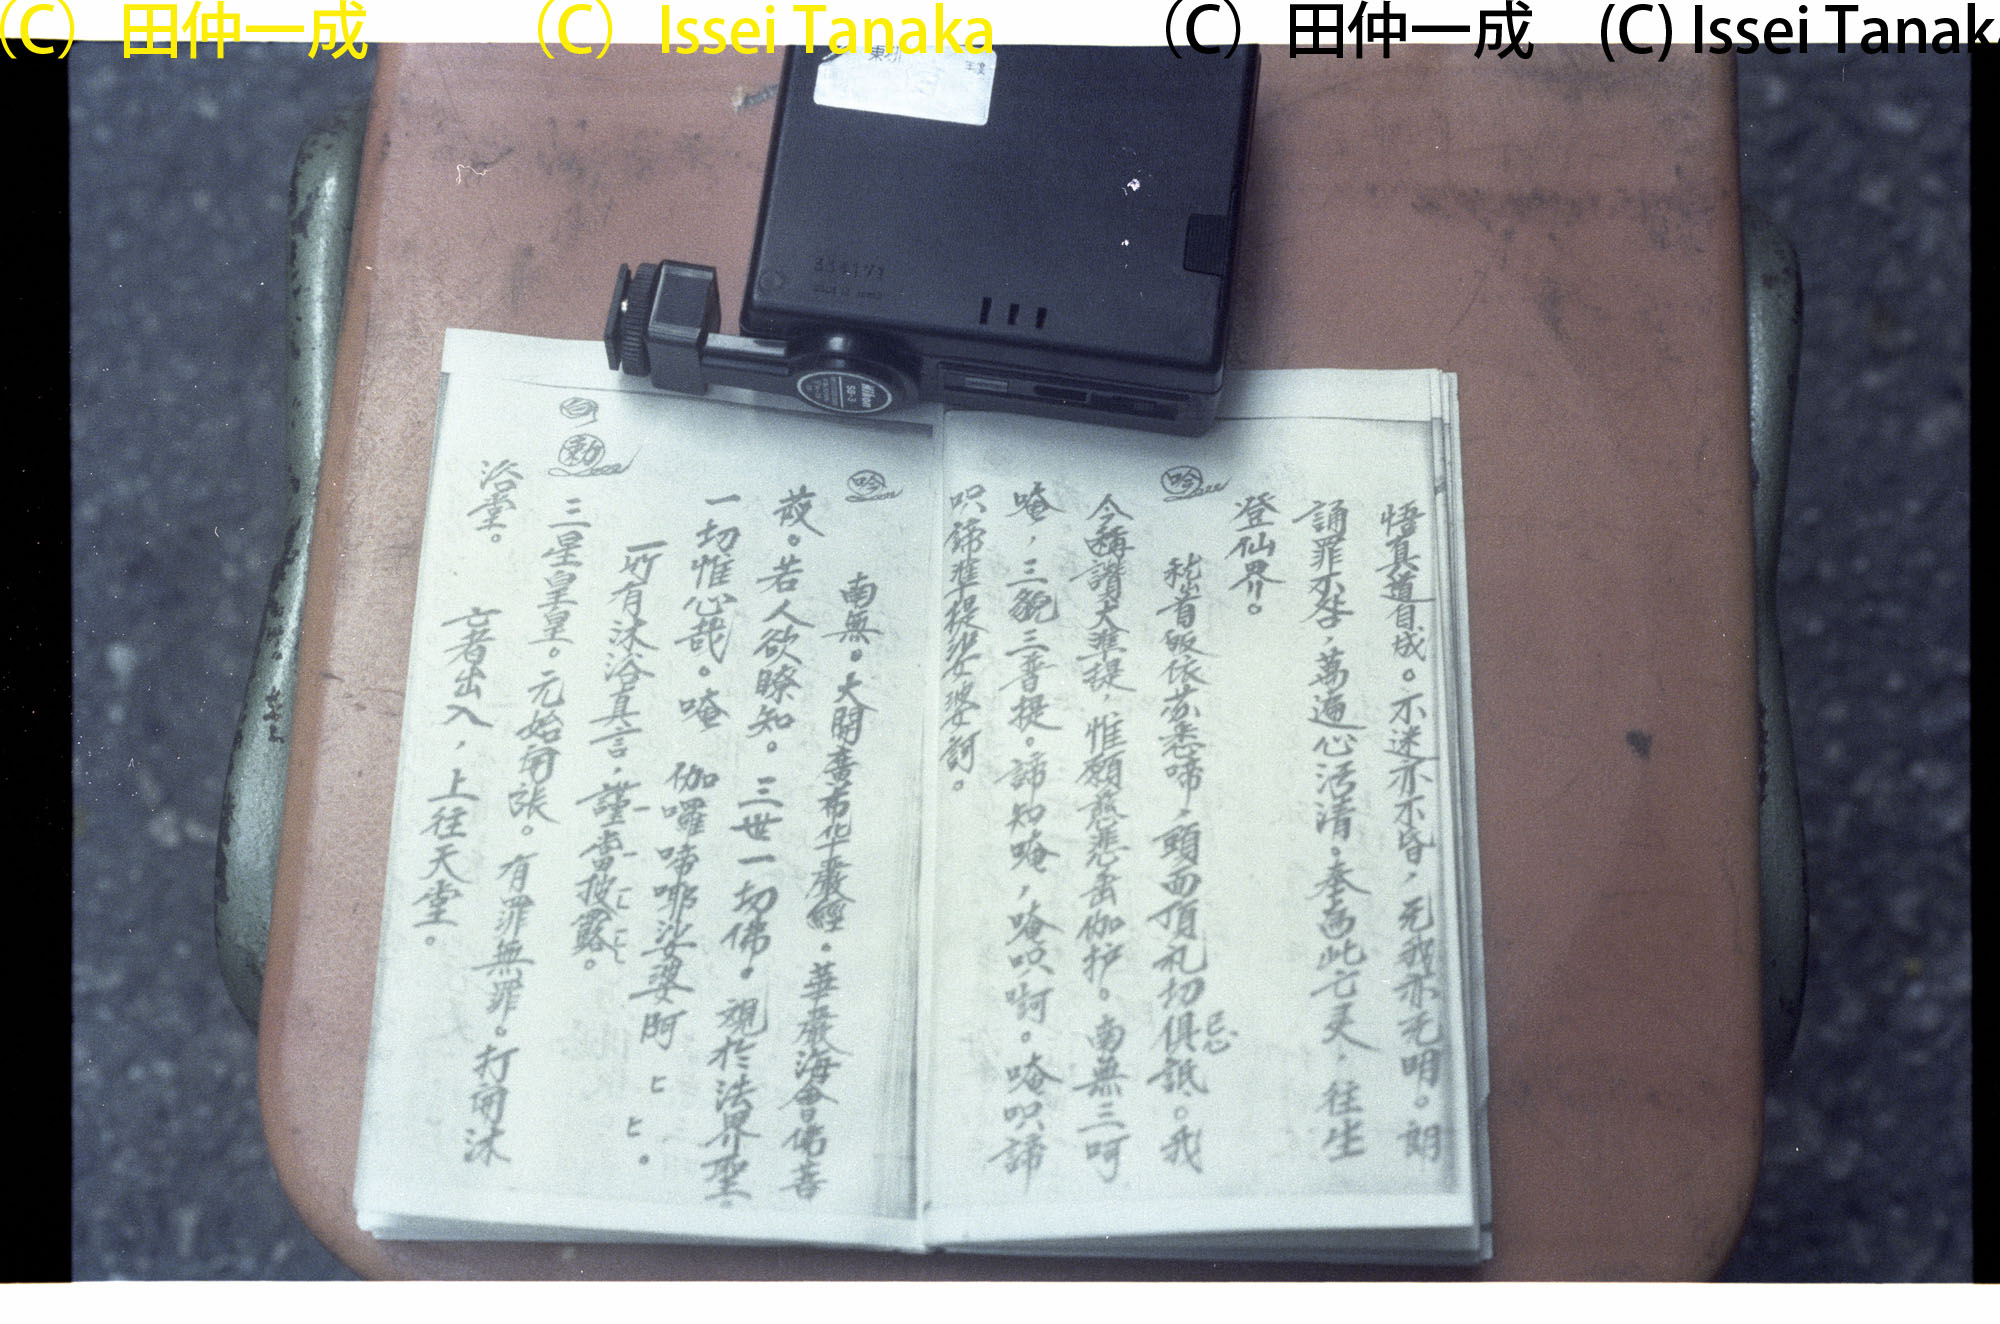 (C) 田仲一成 (C) Issei Tanaka (C) 田仲一成 (C) Issei Tanaka
Nikon
SB-3
悟真道自成。不迷亦不昏，无我亦无明。朗
誦罪不生，萬遍心活清。奉為此亡灵，往生
登仙界。
吟
稽首皈依苏悉啼，頭面頂礼切俱骶。我
今稱讚大準提，惟願慈悲垂伽护。南無三呵
唵，三貌三菩提。諦知唵，唵呮呵。唵呮諦
呮諦準提娑婆訶。
吟
南無。大開廣布华嚴經。華嚴海會佛菩
菠。若人欲瞭知。三世一切佛。覌於法界聖
一切惟心哉。唵 伽囉啼哪娑婆阿 ヒ ヒ。
所有沐浴真言，謹當披露。
白
勅
三星皇皇。元始開張。有罪無罪。打開沐
浴堂。 亡者出入，上往天堂。